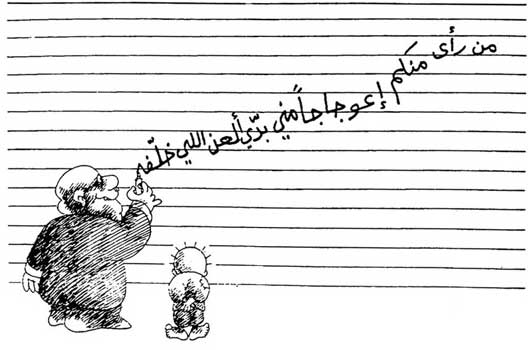 من رأى منكم إعوجاجاً مني بدّي ألعن اللي خلّفه